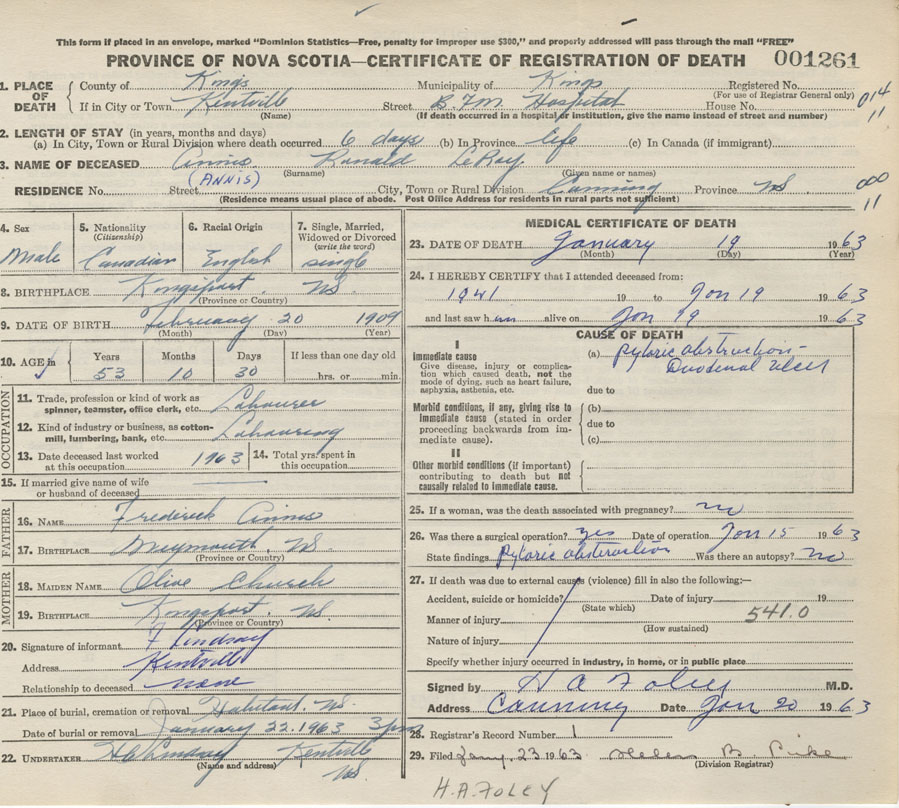 This form if placed in an envelope, marked "Dominion Statistics—Free, penalty for improper use $300," and properly addressed will pass through the mail "FREE"
PROVINCE OF NOVA SCOTIA—CERTIFICATE OF REGISTRATION OF DEATH 001261
1. PLACE OF DEATH County of Kings Municipality of Kings Registered No.
(For use of Registrar General only) 014
If in City or Town Kentville Street B.F.M. Hospital House No. 11
(Name) (If death occurred in a hospital or institution, give the name instead of street and number)
2. LENGTH OF STAY (in years, months and days)
(a) In City, Town or Rural Division where death occurred 6 days (b) In Province life (c) In Canada (if immigrant)
3. NAME OF DECEASED Annis Ronald LeRoy
(ANNIS) (Surname) (Given name or names)
RESIDENCE No. Street City, Town or Rural Division Canning Province NS 000
(Residence means usual place of abode. Post Office Address for residents in rural parts not sufficient) 11
4. Sex Male
5. Nationality (Citizenship) Canadian
6. Racial Origin English
7. Single, Married, Widowed or Divorced (write the word) single
8. BIRTHPLACE Kingsport, NS.
(Province or Country)
9. DATE OF BIRTH February 20 1909
(Month) (Day) (Year)
10. AGE in Years Months Days If less than one day old
53 10 30 hrs. or min.
OCCUPATION
11. Trade, profession or kind of work as spinner, teamster, office clerk, etc. Labourer
12. Kind of industry or business, as cotton-mill, lumbering, bank, etc. Labouring
13. Date deceased last worked at this occupation 1963 14. Total yrs. spent in this occupation
15. If married give name of wife or husband of deceased
FATHER
16. NAME Frederick Annis
17. BIRTHPLACE Weymouth, NS.
(Province or Country)
MOTHER
18. MAIDEN NAME Olive Church
19. BIRTHPLACE Kingsport, NS
(Province or Country)
20. Signature of informant F Lindsay
Address Kentville
Relationship to deceased none
21. Place of burial, cremation or removal Habitant, NS.
Date of burial or removal January 22. 1963 3pm
22. UNDERTAKER Lindsay Kentville
(Name and address) NS.
MEDICAL CERTIFICATE OF DEATH
23. DATE OF DEATH January 19 1963
(Month) (Day) (Year)
24. I HEREBY CERTIFY that I attended deceased from:
1941 19 to Jan 19 1963
and last saw him alive on Jan 19 1963
CAUSE OF DEATH
I
Immediate cause (a) Pyloric obstruction-
Give disease, injury or complication which caused death, not the mode of dying, such as heart failure, asphyxia, asthenia, etc. Duodenal ulcer
due to
Morbid conditions, if any, giving rise to immediate cause (stated in order proceeding backwards from immediate cause). (b)
due to
(c)
II
Other morbid conditions (if important) contributing to death but not causally related to immediate cause.
25. If a woman, was the death associated with pregnancy? no
26. Was there a surgical operation? yes Date of operation Jan 15 1963
State findings Pyloric obstruction Was there an autopsy? no
27. If death was due to external causes (violence) fill in also the following:—
Accident, suicide or homicide? Date of injury 19
(State which)
Manner of injury 541.0
(How sustained)
Nature of injury
Specify whether injury occurred in industry, in home, or in public place
Signed by H A Foley M.D.
Address Canning Date Jan 20 1963
28. Registrar's Record Number 1
29. Filed Jany. 23 1963 Helen B. Pike
(Division Registrar)
H.A. FOLEY